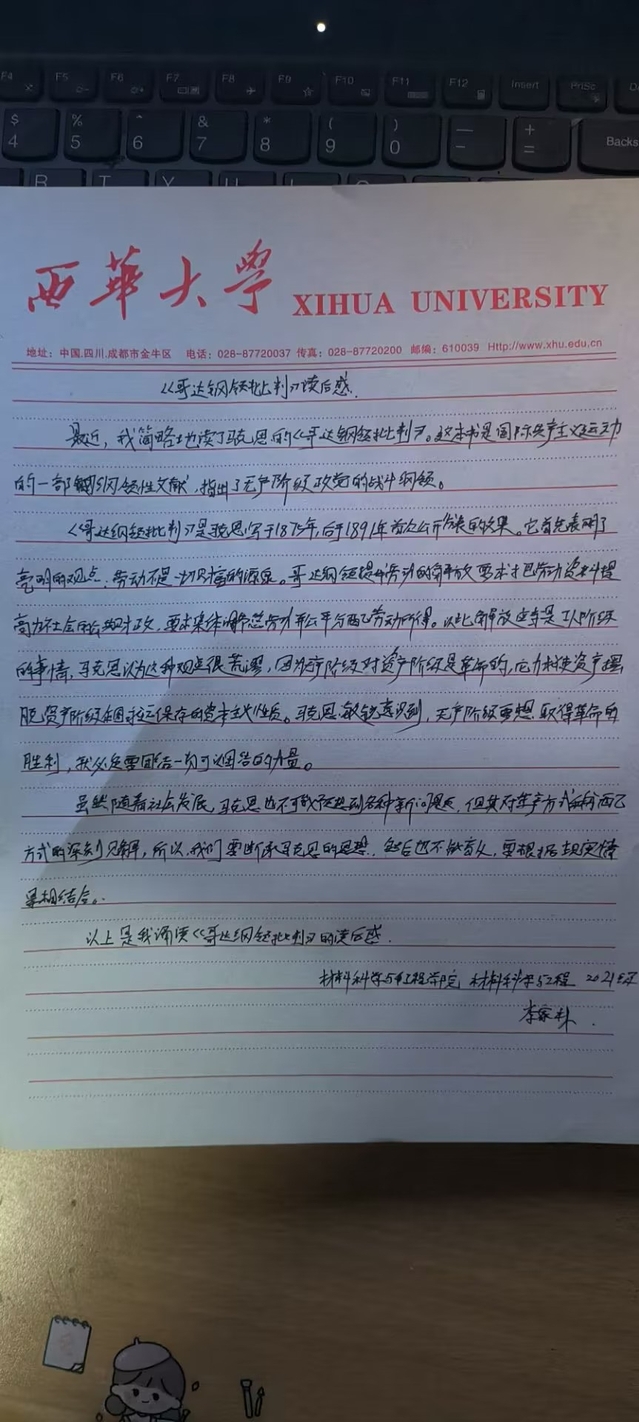 F4 F5 F6 F7 F8 F9 F10 F11 F12 Insert PrtSc
$ % ^ & * ( ) — +
4 5 6 7 8 9 0 - = Backs
R T Y U
西華大學 XIHUA UNIVERSITY
地址：中国.四川.成都市金牛区 电话：028-87720037 传真：028-87720200 邮编：610039 Http://www.xhu.edu.cn
《哥达纲领批判》读后感.
最近，我简略地读了马克思的《哥达纲领批判》。这本书是国际共产主义运动
的一部纲领性文献，指出了无产阶级政党的战斗纲领。
《哥达纲领批判》是马克思写于1875年，后于1891年首次公开发表的文集。它首先表明了
亮明的观点，劳动不是一切财富的源泉。哥达纲领提的劳动的解放要求把劳动资料提
高为社会的公共财政，要求集体调节总劳动并公平分配劳动所得。以此解放应当是工人阶级
的事情，马克思认为这种观点很荒谬，因为无产阶级对资产阶级是革命的，它力求使资产摆
脱资产阶级企图永远保存的资本主义性质。马克思敏锐意识到，无产阶级要想取得革命的
胜利，就必定要团结一切可以团结的力量。
虽然随着社会发展，马克思也不可能预想到各种新问题，但其对生产方式的分配
方式的深刻见解，所以，我们要断承马克思的思想，然后也不能盲从，要根据现实情
景相结合。
以上是我诵读《哥达纲领批判》的读后感.
材料科学与工程学院 材料科学与工程 2021级
李家林.